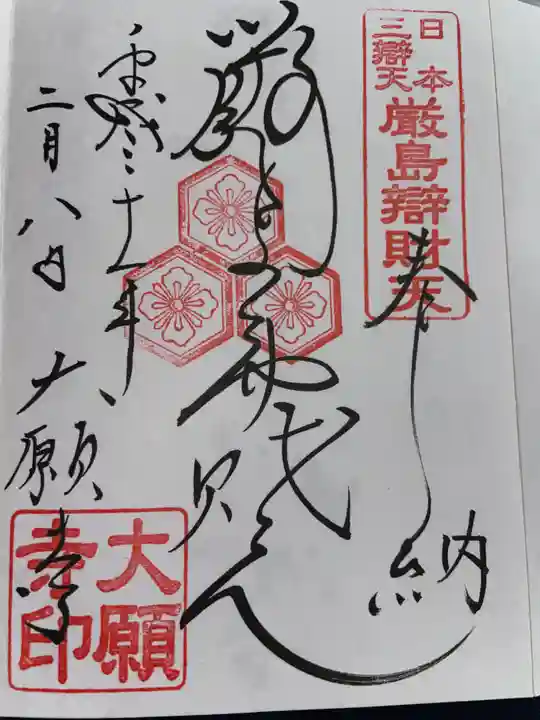 日本
三辯天
厳島辯財天
奉納
厳島弁財天
平成三十一年
二月八日 大願寺
大願
寺印